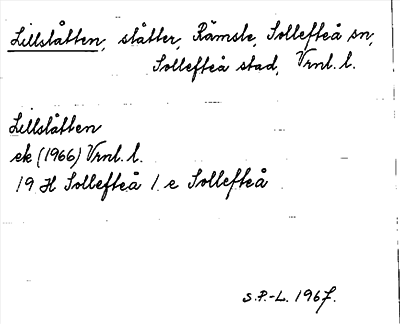 Lillslåtten, slåtter, Rämsle, Sollefteå sn,
Sollefteå stad, Vrnl. l.
Lillslåtten
ek (1966) Vrnl. l.
19 H Sollefteå 1 e Sollefteå
S.P.-L. 1967.